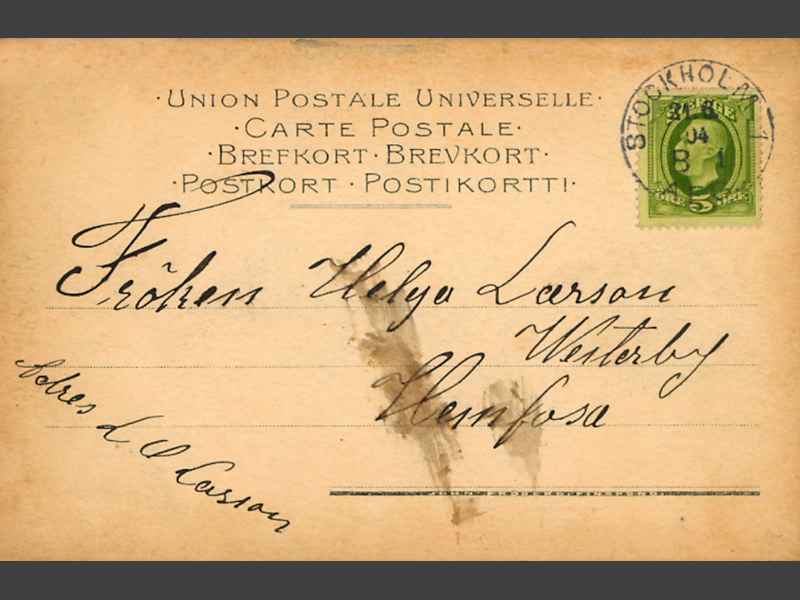 ·UNION POSTALE UNIVERSELLE·
·CARTE POSTALE·
·BREFKORT·BREVKORT·
·POSTKORT·POSTIKORTTI·
STOCKHOLM 1
21 8
04
B 1
SVERIGE
5
ÖRE ÖRE
Fröken Helga Larson
Westerby
Hemfosa
Adres L O Larson